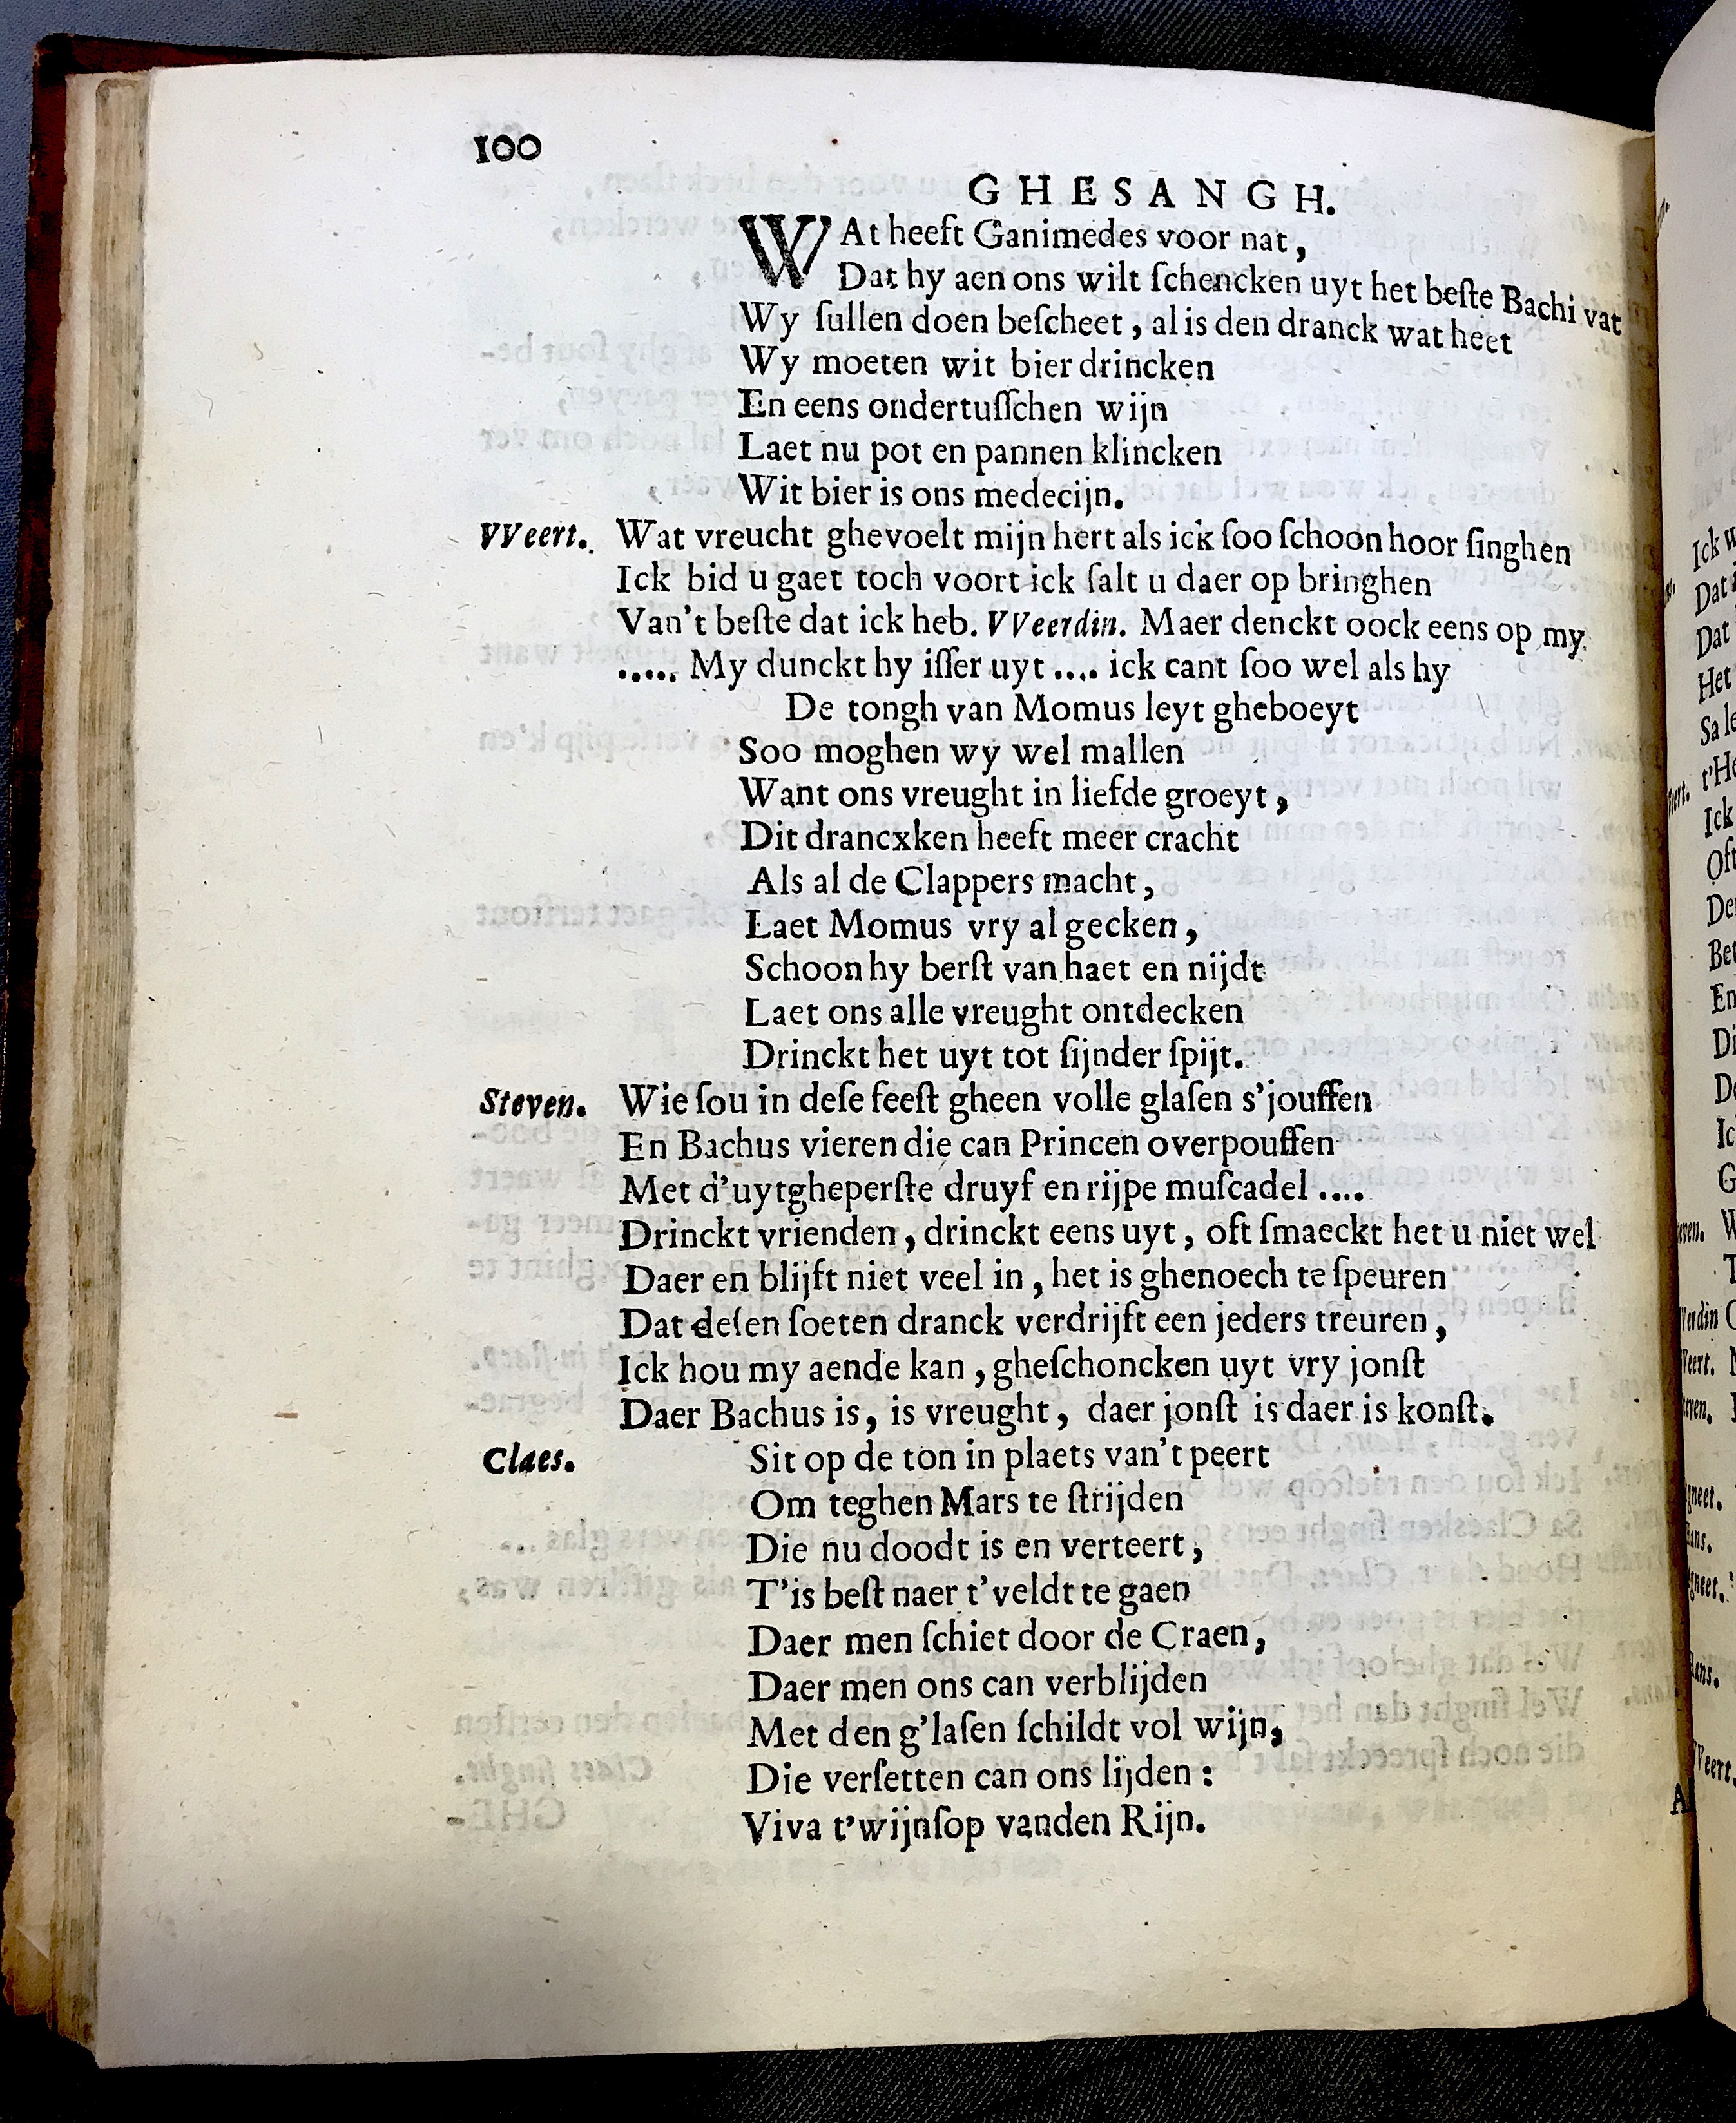 100
GHESANGH.
WAt heeft Ganimedes voor nat,
Dat hy aen ons wilt ſchencken uyt het beſte Bachi vat
Wy ſullen doen beſcheet, al is den dranck wat heet
Wy moeten wit bier drincken
En eens ondertuſſchen wijn
Laet nu pot en pannen klincken
Wit bier is ons medecijn.
VVeert. Wat vreucht ghevoelt mijn hert als ick ſoo ſchoon hoor ſinghen
Ick bid u gaet toch voort ick ſalt u daer op bringhen
Van't beſte dat ick heb. VVeerdin. Maer denckt oock eens op my
..... My dunckt hy iſſer uyt .... ick cant ſoo wel als hy
De tongh van Momus leyt gheboeyt
Soo moghen wy wel mallen
Want ons vreught in liefde groeyt,
Dit drancxken heeft meer cracht
Als al de Clappers macht,
Laet Momus vry al gecken,
Schoon hy berſt van haet en nijdt
Laet ons alle vreught ontdecken
Drinckt het uyt tot ſijnder ſpijt.
Steven. Wie ſou in deſe feeſt gheen volle glaſen s'jouffen
En Bachus vieren die can Princen overpouffen
Met d'uytgheperſte druyf en rijpe muſcadel ....
Drinckt vrienden, drinckt eens uyt, oft ſmaeckt het u niet wel
Daer en blijft niet veel in, het is ghenoech te ſpeuren
Dat deſen ſoeten dranck verdrijft een jeders treuren,
Ick hou my aende kan, gheſchoncken uyt vry jonſt
Daer Bachus is, is vreught, daer jonſt is daer is konſt.
Claes. Sit op de ton in plaets van't peert
Om teghen Mars te ſtrijden
Die nu doodt is en verteert,
T'is beſt naer t'veldt te gaen
Daer men ſchiet door de Craen,
Daer men ons can verblijden
Met den g'laſen ſchildt vol wijn,
Die verſetten can ons lijden:
Viva t'wijnſop vanden Rijn.